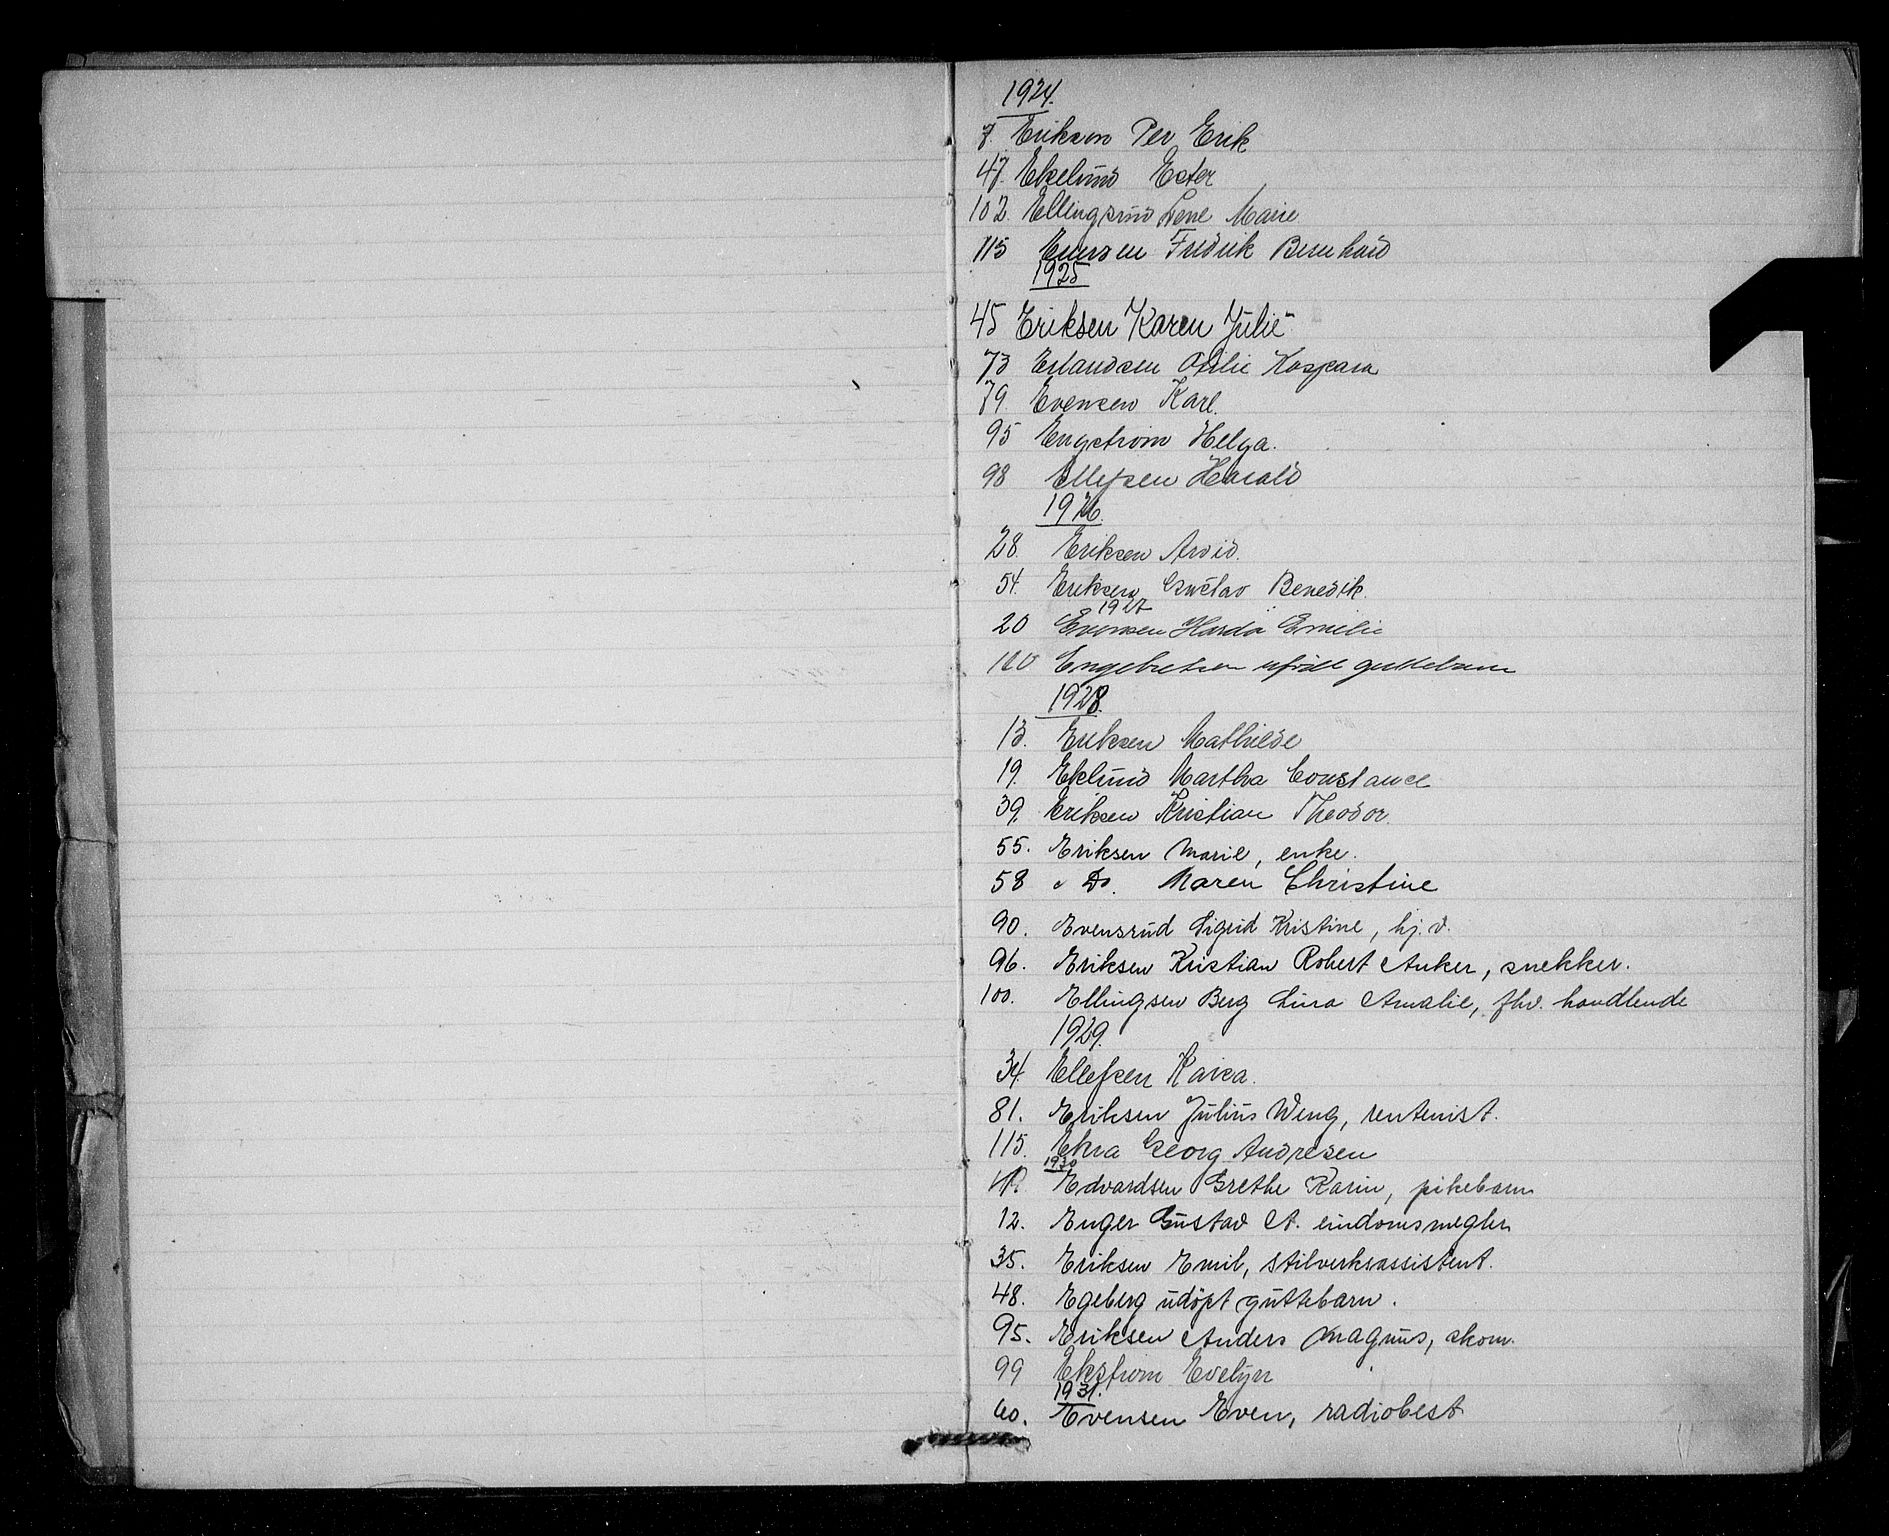 1924.
7. Erikson Per Erik
47. Ekelund Ester
102. Ellingsrud Lene Marie
115 Fredrik Bernhard
1925
45 Eriksen Karen Julie
73 Erlandsen Otilie Kaspara
79 Evensen Karl.
95 Engstrøm Helga.
98 Ellefsen Harald
1926.
28. Eriksen Arvid.
54. Eriksen Gustav Benedik.
1927
20 Evensen Harda Emilie
100 Engebretsen udøbt guttebarn
1928.
13. Eriksen Mathilde
19. Eklund Martha Constance
39. Eriksen Kristian Theodor.
55. Eriksen Marie, enke.
58 " Do. Maren Christine
90. Evensrud Sigrid Kristine, hj.v.
96. Eriksen Kristian Robert Anker, snekker.
100. Ellingsen Berg Lina Amalie, fhv. handlende
1929.
34. Ellefsen Kaisa.
81. Eriksen Julius Weng, rentenist.
115. Ekra Georg Andresen
1930
Edvardsen Grethe Karin, pikebarn
12. Enger Gustav A. eindomsmegler
35. Eriksen Emil, stilverksassistent.
48. Egeberg udøpt guttebarn.
95. Eriksen Anders Magnus, skom.
99 Ekstrøm Evelyn
1931.
60. Evensen Even, radiobest